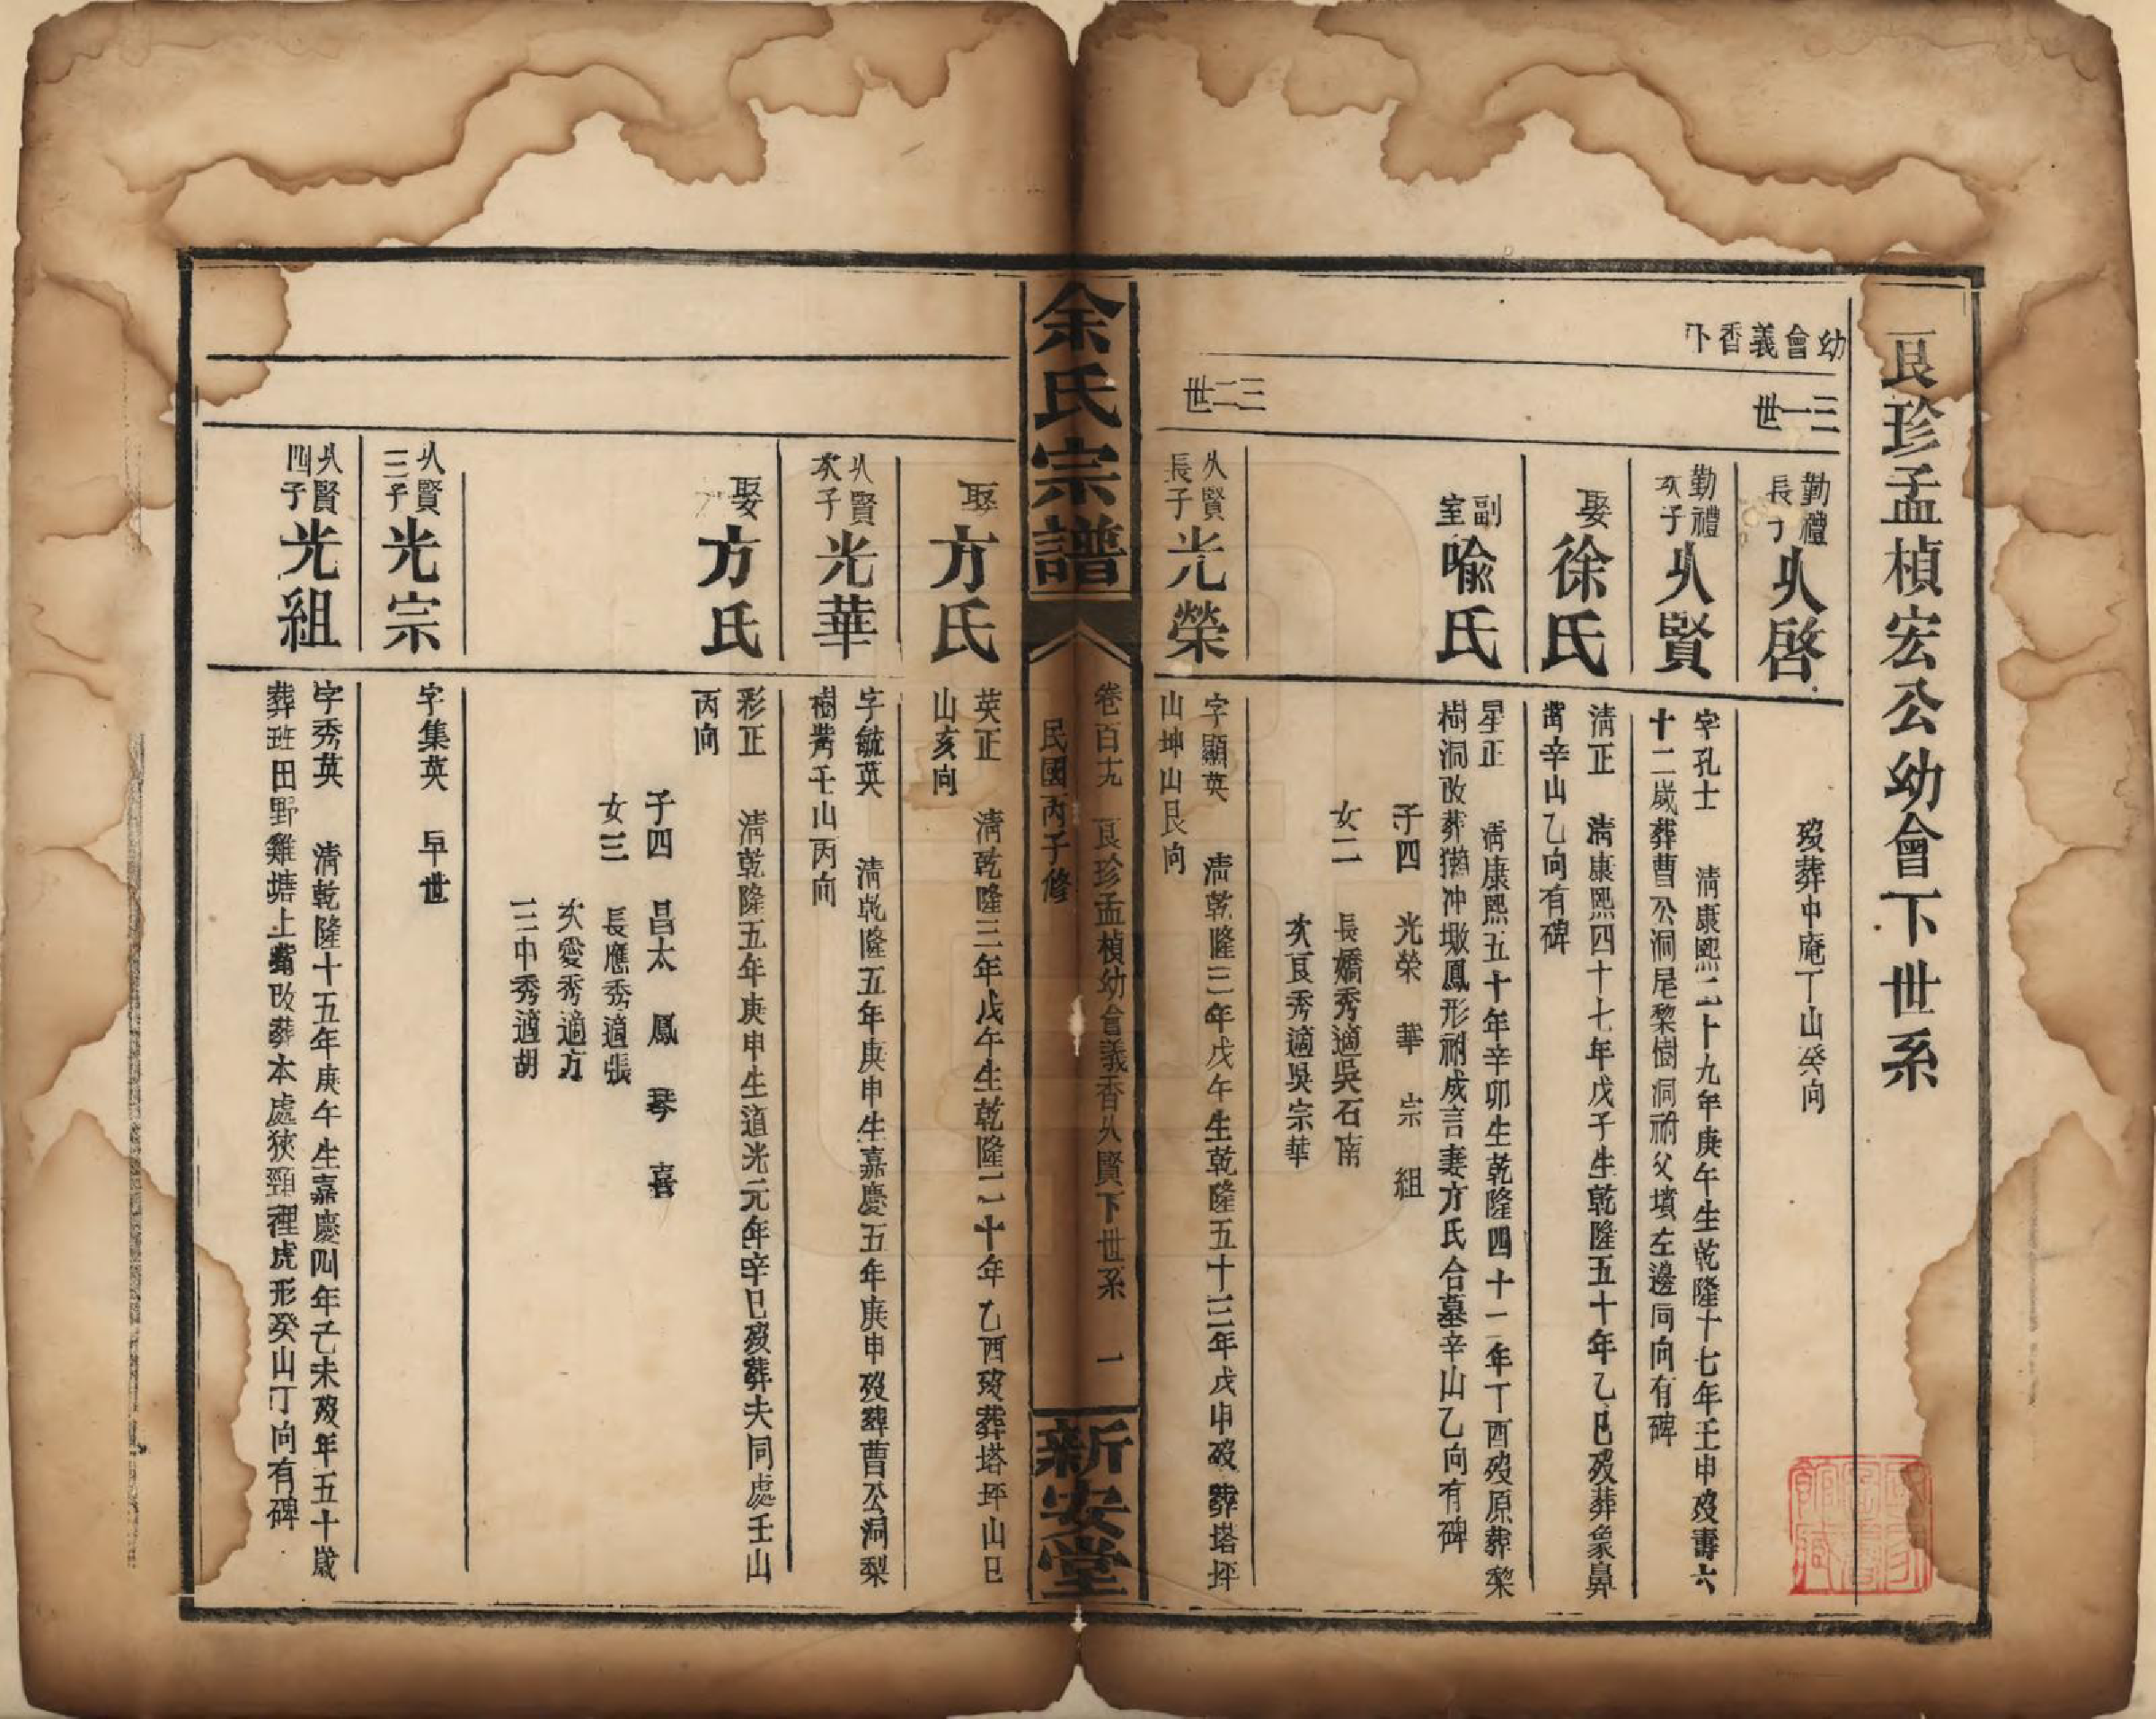 良珍孟楨宏公幼會下世系
幼會義香下
三一世
勤禮
長子
㕥啓
歿葬中庵丁山癸向
勤禮
次子
㕥賢
字孔士 清康熙二十九年庚午生乾隆十七年壬申歿壽六
十二歲葬曹公洞尾黎樹洞祔父墳左邊同向有碑
娶
徐氏
清正 清康熙四十七年戊子生乾隆五十年乙巳歿葬象鼻
嘴辛山乙向有碑
副
室
喩氏
星正 清康熙五十年辛卯生乾隆四十一年丁酉歿原葬黎
樹洞改葬獺冲墩鳳形祔成言妻方氏合墓辛山乙向有碑
子四 光榮 華 宗 組
女二 長嬌秀適吳石南
次良秀適吳宗華
三二世
㕥賢
長子
光榮
字顯英 清乾隆三年戊午生乾隆五十三年戊申歿葬塔坪
山坤山艮向
余氏宗譜
卷百九 良珍孟楨幼會義香㕥賢下世系 一
民國丙子修
新安堂
娶
方氏
英正 清乾隆三年戊午生乾隆二十年乙酉歿葬塔坪山巳
山亥向
㕥賢
次子
光華
字毓英 清乾隆五年庚申生嘉慶五年庚申歿葬曹公洞梨
樹嘴壬山丙向
娶
方氏
彩正 清乾隆五年庚申生道光元年辛巳歿葬夫同處壬山
丙向
子四 昌太 鳳 琴 喜
女三 長應秀適張
次愛秀適方
三中秀適胡
㕥賢
三子
光宗
字集英 早世
㕥賢
四子
光組
字秀英 清乾隆十五年庚午生嘉慶四年己未歿年五十歲
葬班田野雞塘上嘴改葬本處狹頸裡虎形癸山丁向有碑